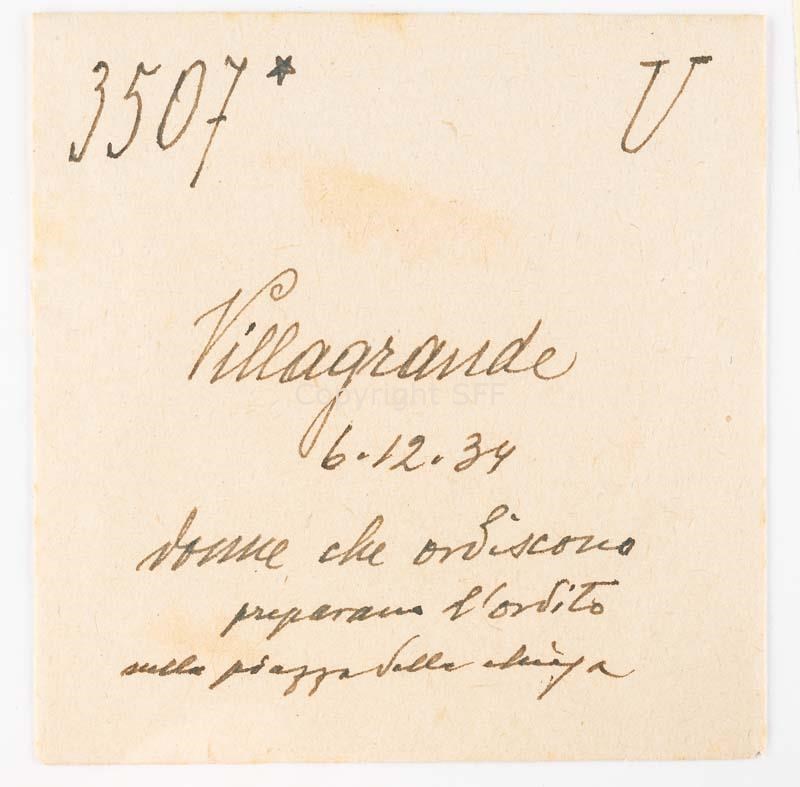 3507* V
Villagrande
Copyright SFF
6.12.34
donne che ordiscono
preparano l'ordito
sulla piazza della chiesa